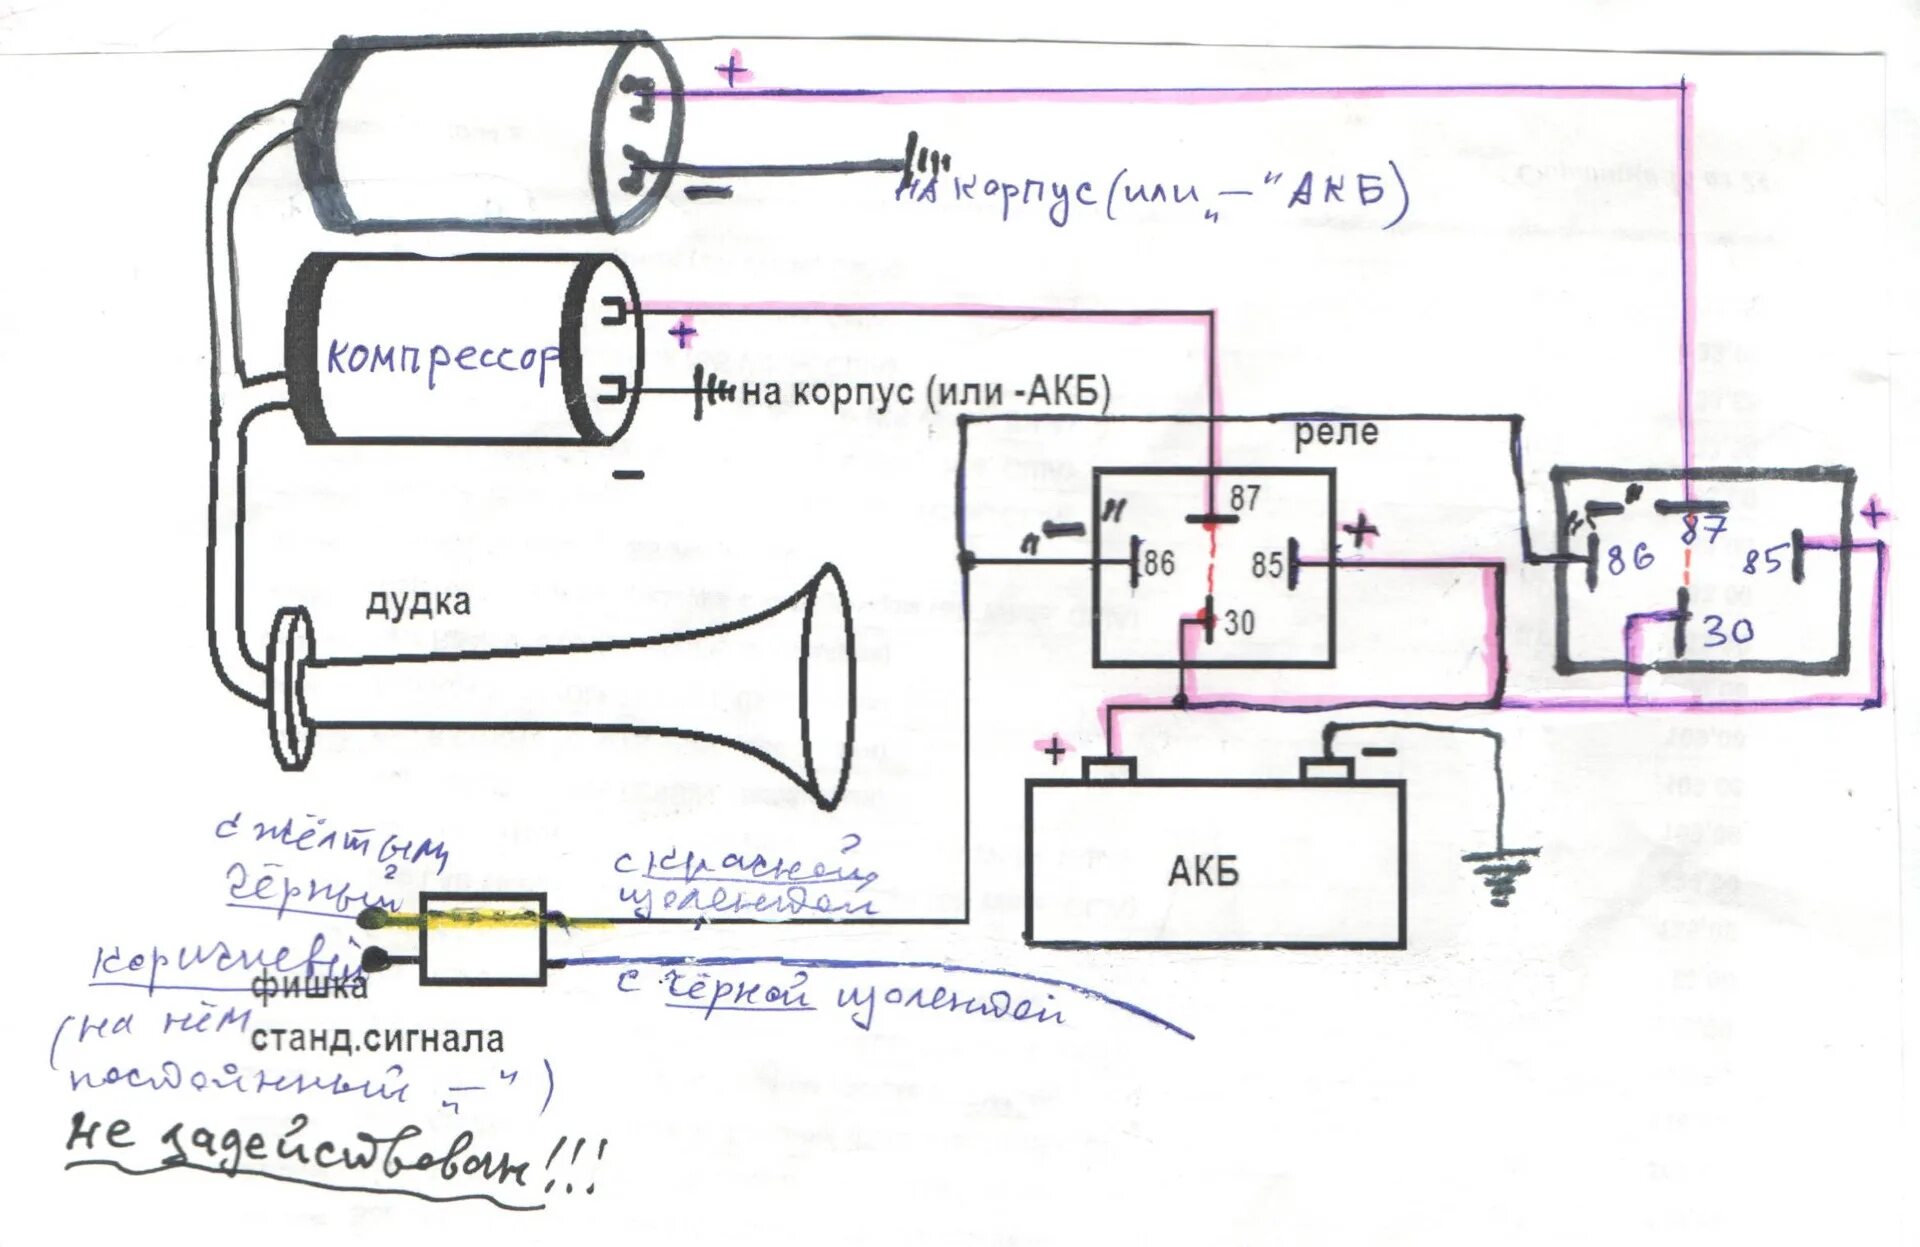 +
на корпус (или „—" АКБ)
—
компрессор
+
на корпус (или -АКБ)
—
реле
"—"
87
86
85
+
30
"—"
87
86
85
+
30
дудка
+
—
АКБ
с жёлтым
чёрный
с красной
изолентой
коричневый
фишка
с чёрной изолентой
(на нём
станд.сигнала
постоянный „—")
не задействован!!!